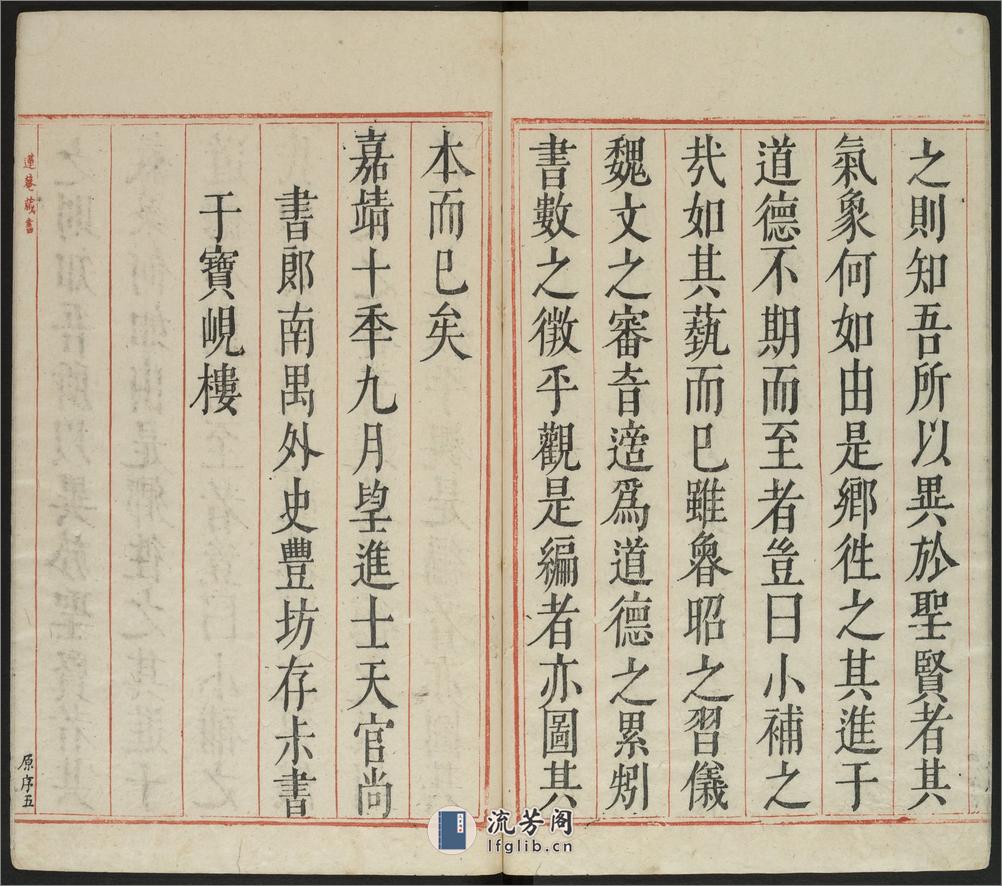 之則知吾所以異於聖賢者其
氣象何如由是鄉徃之其進于
道德不期而至者豈曰小補之
㢤如其蓺而已雖魯昭之習儀
魏文之審音適爲道德之累矧
書數之徴乎觀是編者亦圖其
本而已矣
嘉靖十年九月望進士天官尚
書郎南禺外史豐坊存尗書
于寶峴樓
蓮菴藏書
原序五
流芳阁
lfglib.cn